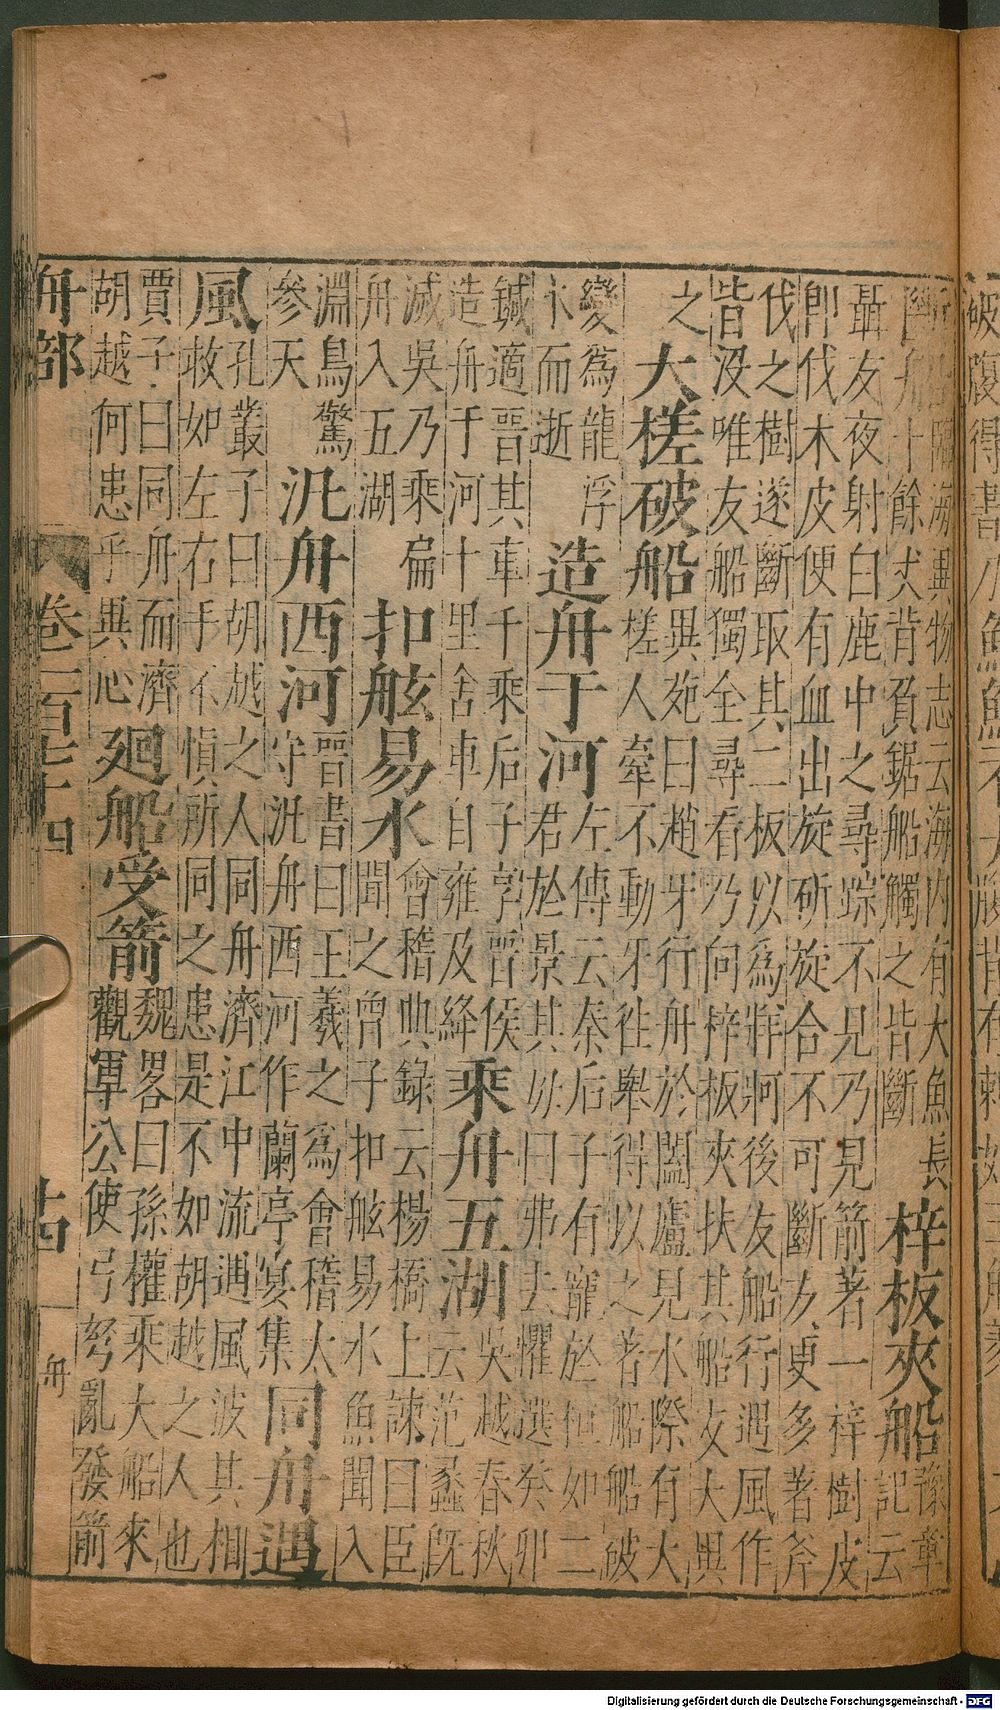 臨海異物志云海內有大魚長
十餘丈背負鋸船觸之皆斷
梓板夾船
豫章
記云
聶友夜射白鹿中之尋踪不見乃見箭著一梓樹皮
卽伐木皮便有血出旋斫旋合不可斷友更多著斧
伐之樹遂斷取其二板以為牂牁後友船行遇風作
皆沒唯友船獨全尋看乃向梓板夾扶其船友大異
之
大槎破船
異苑曰趙牙行舟於闔廬見水際有大
槎人牽不動牙往舉得以之著船船破
變為龍浮
水而逝
造舟于河
左傳云秦后子有寵於桓如二
君於景其母曰弗去懼選癸卯
鍼適晉其車千乘后子享晉侯
造舟于河十里舍車自雍及絳
乘舟五湖
吳越春秋
云范蠡旣
滅吳乃乘扁
舟入五湖
扣舷易水
會稽典錄云楊橋上諫曰臣
聞之曾子扣舷易水魚聞入
淵鳥驚
參天
汎舟西河
晉書曰王羲之為會稽太
守汎舟西河作蘭亭宴集
同舟遇
風
孔叢子曰胡越之人同舟濟江中流遇風波其相
救如左右手不慎所同之患是不如胡越之人也
賈子曰同舟而濟
胡越何患乎異心
廻船受箭
魏畧曰孫權乘大船來
觀軍公使弓弩亂發箭
舟部
卷一百七十四
十四
舟
Digitalisierung gefördert durch die Deutsche Forschungsgemeinschaft - DFG